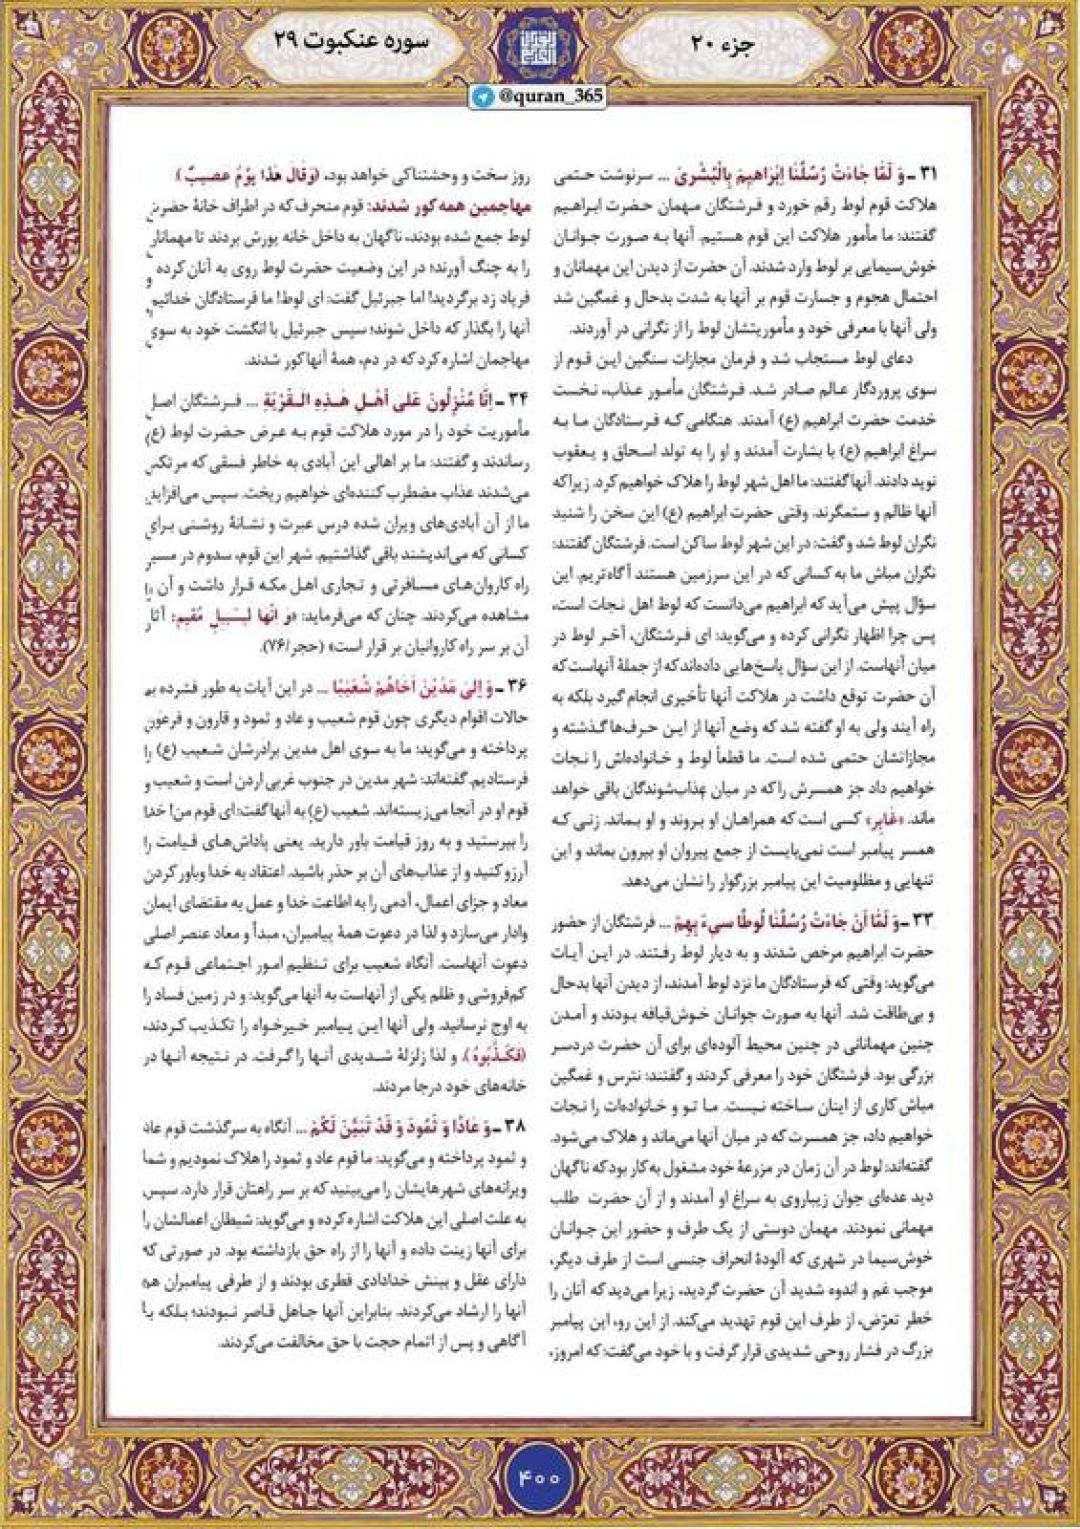 جزء ۲۰
سوره عنکبوت ۲۹
@quran_365
۳۱ـ وَ لَمَّا جَاءَتْ رُسُلُنَا اِبْرَاهِیمَ بِالْبُشْریٰ ... سرنوشت حتمی
هلاکت قوم لوط رقم خورد و فرشتگان میهمان حضرت ابراهیم
گفتند: ما مأمور هلاکت این قوم هستیم. آنها به صورت جوانان
خوش‌سیمایی بر لوط وارد شدند. آن حضرت از دیدن این مهمانان و
احتمال هجوم و جسارت قوم بر آنها به شدت بدحال و غمگین شد
ولی آنها با معرفی خود و مأموریتشان لوط را از نگرانی در آوردند.
دعای لوط مستجاب شد و فرمان مجازات سنگین این قوم از
سوی پروردگار عالم صادر شد. فرشتگان مأمور عذاب، نخست
خدمت حضرت ابراهیم (ع) آمدند. هنگامی که فرستادگان ما به
سراغ ابراهیم (ع) با بشارت آمدند و او را به تولد اسحاق و یعقوب
نوید دادند. آنها گفتند: ما اهل شهر لوط را هلاک خواهیم کرد. زیرا که
آنها ظالم و ستمگرند. وقتی حضرت ابراهیم (ع) این سخن را شنید
نگران لوط شد و گفت: در این شهر لوط ساکن است. فرشتگان گفتند:
نگران مباش ما به کسانی که در این سرزمین هستند آگاه‌تریم. این
سؤال پیش می‌آید که ابراهیم می‌دانست که لوط اهل نجات است،
پس چرا اظهار نگرانی کرده و می‌گوید: ای فرشتگان، آخر لوط در
میان آنهاست. از این سؤال پاسخ‌هایی داده‌اند که از جملهٔ آنهاست که
آن حضرت توقع داشت در هلاکت آنها تأخیری انجام گیرد بلکه به
راه آیند ولی به او گفته شد که وضع آنها از این حرف‌ها گذشته و
مجازاتشان حتمی شده است. ما قطعاً لوط و خانواده‌اش را نجات
خواهیم داد جز همسرش را که در میان عذاب‌شوندگان باقی خواهد
ماند. «غَابِر» کسی است که همراهان او بروند و او بماند. زنی که
همسر پیامبر است نمی‌بایست از جمع پیروان او بیرون بماند و این
تنهایی و مظلومیت این پیامبر بزرگوار را نشان می‌دهد.
۳۳ـ وَ لَمَّا اَنْ جَاءَتْ رُسُلُنَا لُوطًا سیءَ بِهِمْ ... فرشتگان از حضور
حضرت ابراهیم مرخص شدند و به دیار لوط رفتند. در این آیات
می‌گوید: وقتی که فرستادگان ما نزد لوط آمدند، از دیدن آنها بدحال
و بی‌طاقت شد. آنها به صورت جوانان خوش‌قیافه بودند و آمدن
چنین مهمانانی در چنین محیط آلوده‌ای برای آن حضرت دردسر
بزرگی بود. فرشتگان خود را معرفی کردند و گفتند: نترس و غمگین
مباش کاری از اینان ساخته نیست. ما تو و خانواده‌ات را نجات
خواهیم داد، جز همسرت که در میان آنها می‌ماند و هلاک می‌شود.
گفته‌اند: لوط در آن زمان در مزرعهٔ خود مشغول به کار بود که ناگهان
دید عده‌ای جوان زیباروی به سراغ او آمدند و از آن حضرت طلب
مهمانی نمودند. مهمان دوستی از یک طرف و حضور این جوانان
خوش‌سیما در شهری که آلودهٔ انحراف جنسی است از طرف دیگر،
موجب غم و اندوه شدید آن حضرت گردید، زیرا می‌دید که آنان را
خطر تعرّض، از طرف این قوم تهدید می‌کند. از این رو، این پیامبر
بزرگ در فشار روحی شدیدی قرار گرفت و با خود می‌گفت: که امروز،
روز سخت و وحشتناکی خواهد بود، (وَقَالَ هٰذَا یَوْمٌ عَصیبٌ)
مهاجمین همه کور شدند: قوم منحرف که در اطراف خانهٔ حضرت
لوط جمع شده بودند، ناگهان به داخل خانه یورش بردند تا مهمانان
را به چنگ آورند؛ در این وضعیت حضرت لوط روی به آنان کرده و
فریاد زد برگردید! اما جبرئیل گفت: ای لوط! ما فرستادگان خدائیم
آنها را بگذار که داخل شوند؛ سپس جبرئیل با انگشت خود به سوی
مهاجمان اشاره کرد که در دم، همهٔ آنها کور شدند.
۳۴ـ اِنَّا مُنْزِلُونَ عَلیٰ اَهْلِ هٰذِهِ الْقَرْیَةِ ... فرشتگان اصل
مأموریت خود را در مورد هلاکت قوم به عرض حضرت لوط (ع)
رساندند و گفتند: ما بر اهالی این آبادی به خاطر فسقی که مرتکب
می‌شدند عذاب مضطرب کننده‌ای خواهیم ریخت. سپس می‌افزاید:
ما از آن آبادی‌های ویران شده درس عبرت و نشانهٔ روشنی برای
کسانی که می‌اندیشند باقی گذاشتیم. شهر این قوم، سدوم در مسیر
راه کاروان‌های مسافرتی و تجاری اهل مکه قرار داشت و آن را
مشاهده می‌کردند. چنان که می‌فرماید: «وَ اِنَّها لَبِسَبیلٍ مُقیمٍ؛ آثار
آن بر سر راه کاروانیان بر قرار است» (حجر/۷۶).
۳۶ـ وَ اِلیٰ مَدْیَنَ اَخَاهُمْ شُعَیْبًا ... در این آیات به طور فشرده به
حالات اقوام دیگری چون قوم شعیب و عاد و ثمود و قارون و فرعون
پرداخته و می‌گوید: ما به سوی اهل مدین برادرشان شعیب (ع) را
فرستادیم. گفته‌اند: شهر مدین در جنوب غربی اردن است و شعیب و
قوم او در آنجا می‌زیسته‌اند. شعیب (ع) به آنها گفت: ای قوم من! خدا
را بپرستید و به روز قیامت باور دارید. یعنی پاداش‌های قیامت را
آرزو کنید و از عذاب‌های آن بر حذر باشید. اعتقاد به خدا و باور کردن
معاد و جزای اعمال، آدمی را به اطاعت خدا و عمل به مقتضای ایمان
وادار می‌سازد و لذا در دعوت همهٔ پیامبران، مبدأ و معاد عنصر اصلی
دعوت آنهاست. آنگاه شعیب برای تنظیم امور اجتماعی قوم که
کم‌فروشی و ظلم یکی از آنهاست به آنها می‌گوید: و در زمین فساد را
به اوج نرسانید. ولی آنها این پیامبر خیرخواه را تکذیب کردند،
(فَکَذَّبُوهُ)، و لذا زلزلهٔ شدیدی آنها را گرفت. در نتیجه آنها در
خانه‌های خود درجا مردند.
۳۸ـ وَ عَادًا وَ ثَمُودَ وَ قَدْ تَبَیَّنَ لَکُمْ ... آنگاه به سرگذشت قوم عاد
و ثمود پرداخته و می‌گوید: ما قوم عاد و ثمود را هلاک نمودیم و شما
ویرانه‌های شهرهایشان را می‌بینید که بر سر راهتان قرار دارد. سپس
به علت اصلی این هلاکت اشاره کرده و می‌گوید: شیطان اعمالشان را
برای آنها زینت داده و آنها را از راه حق بازداشته بود. در صورتی که
دارای عقل و بینش خدادادی فطری بودند و از طرفی پیامبران هم
آنها را ارشاد می‌کردند. بنابراین آنها جاهل قاصر نبودند؛ بلکه با
آگاهی و پس از اتمام حجت با حق مخالفت می‌کردند.
۴۰۰